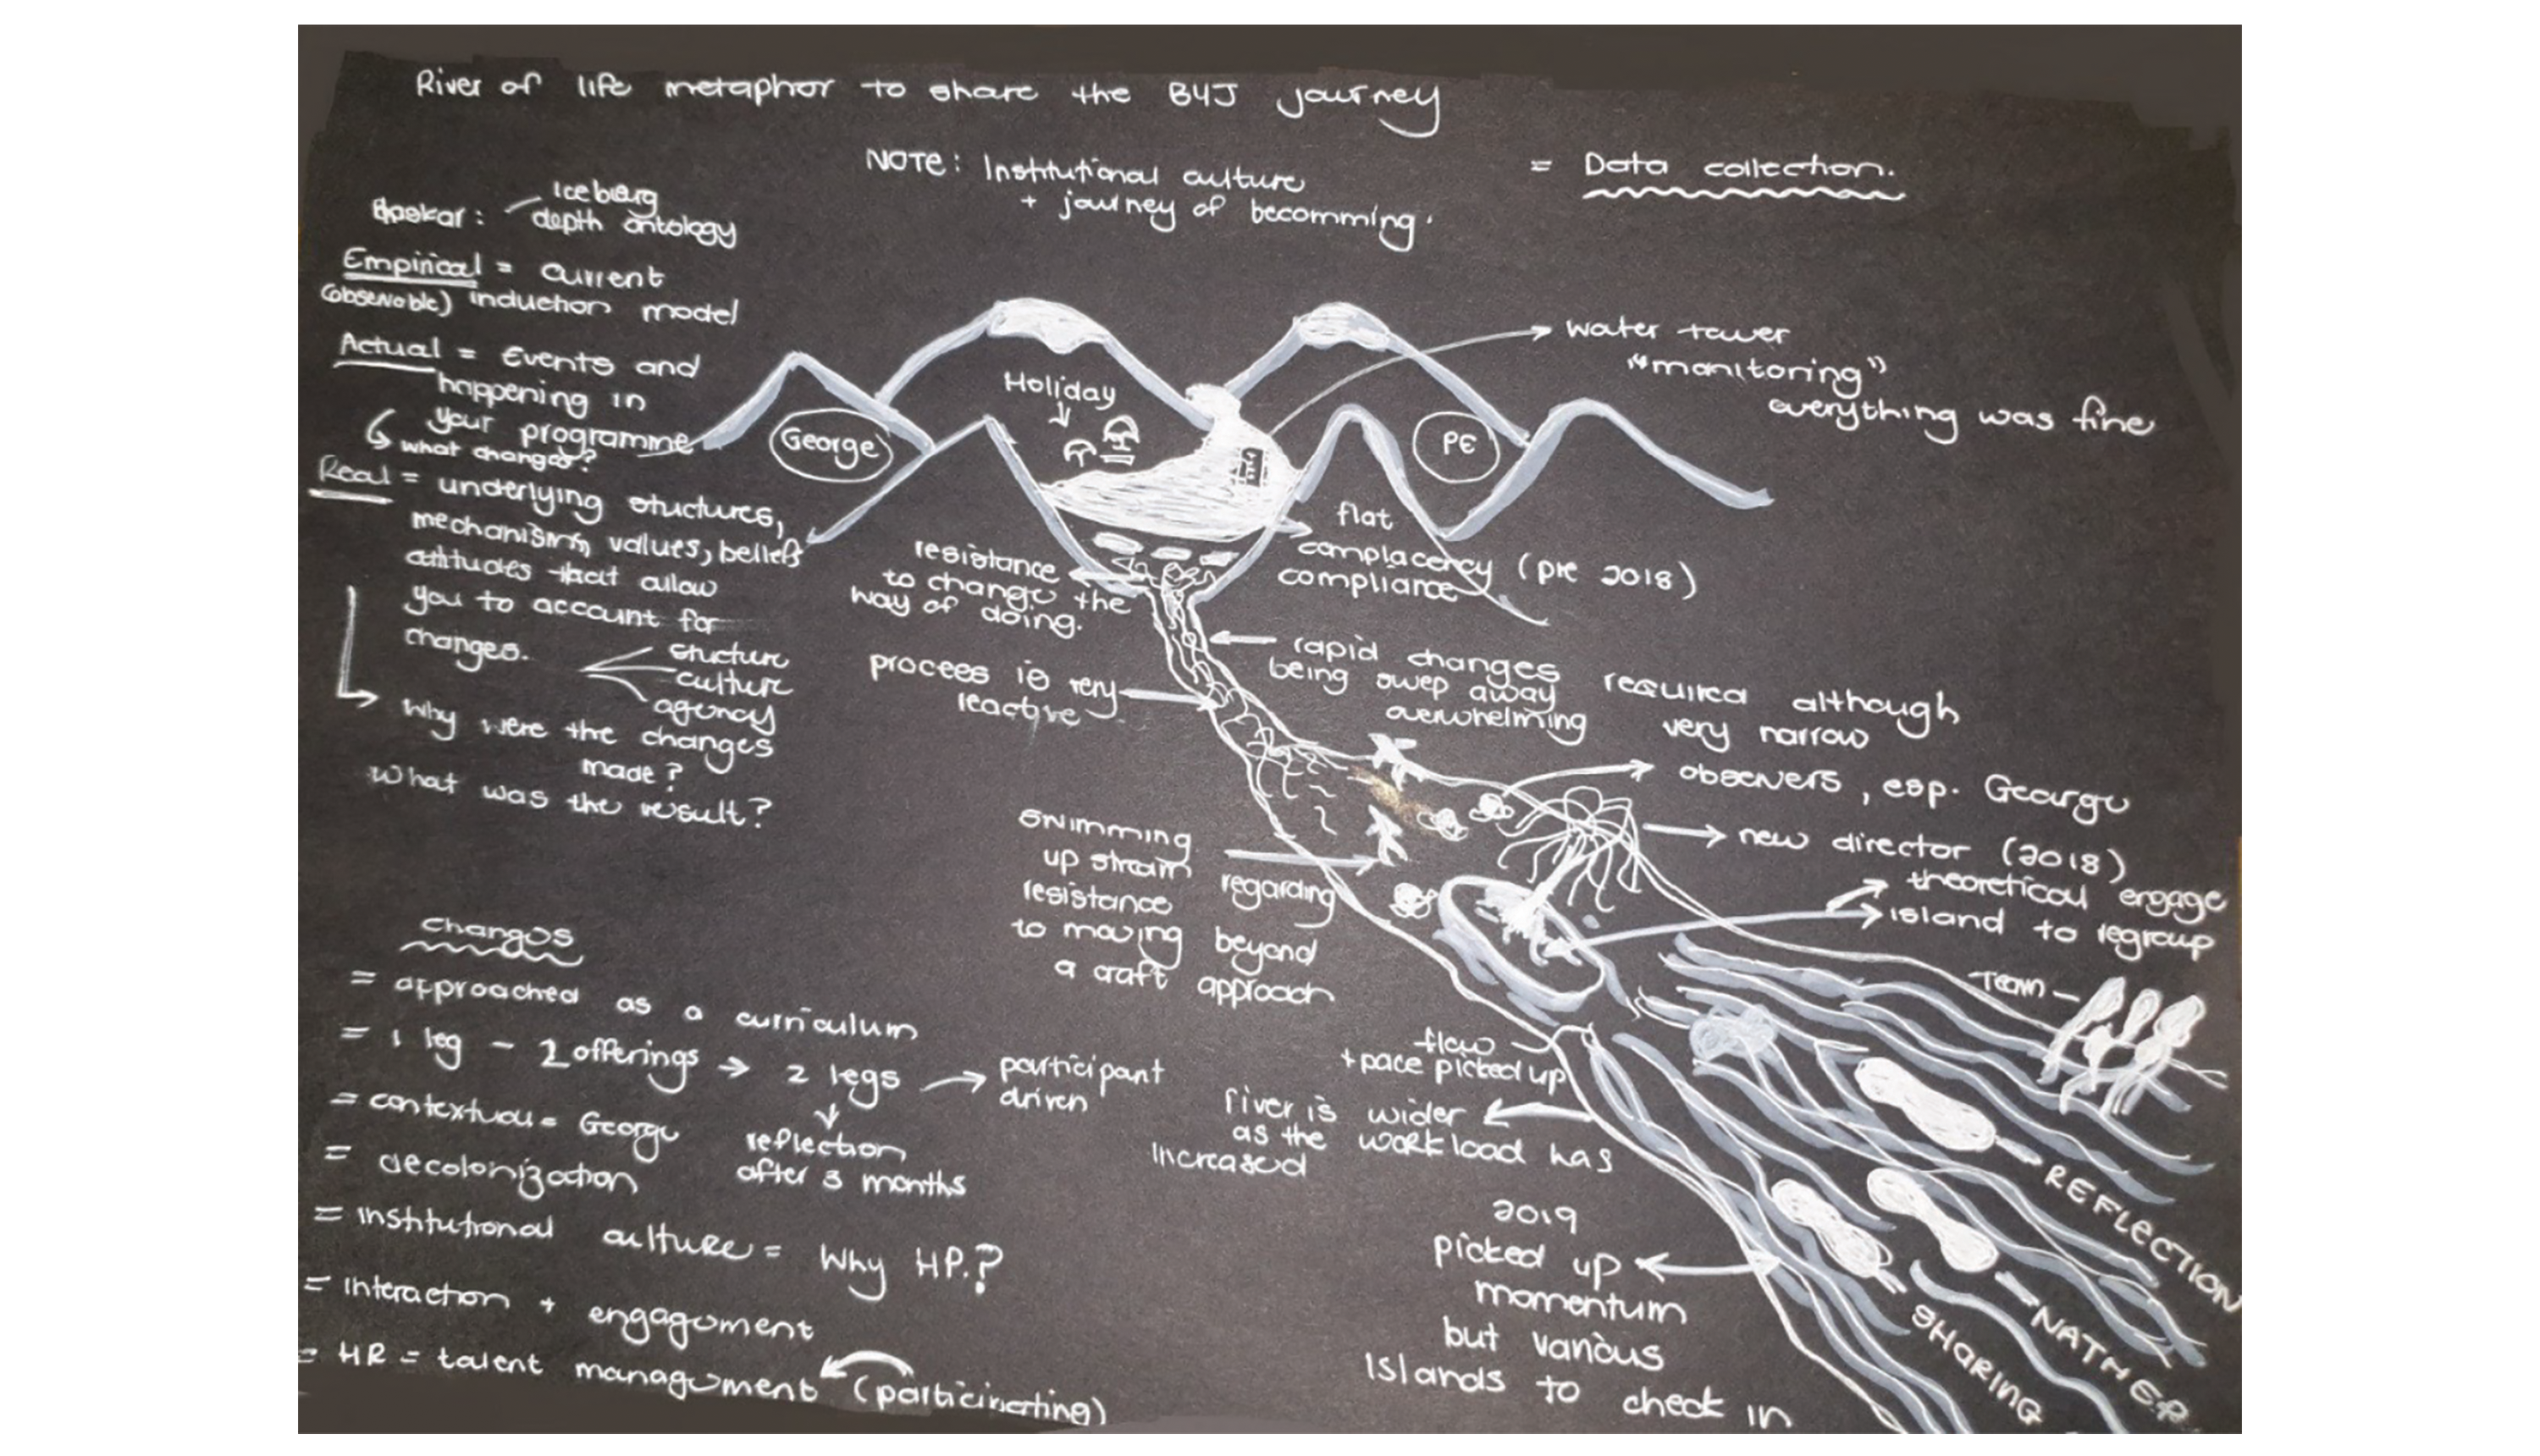 River of life metaphor to share the B4J journey
NOTE: Institutional culture
+ journey of becomming.
= Data collection.
Iceberg
depth ontology
Empirical = current
(observable) induction model
Actual = Events and
happening in
your programme
what changed?
Real = underlying structures,
mechanisms, values, beliefs
attitudes that allow
you to account for
changes.
structure
culture
agency
Why were the changes
made?
What was the result?
Changes
= approached as a curriculum
= 1 leg - 2 offerings → 2 legs → participant
driven
reflection
after 3 months
= contextual = George
= decolonization
= institutional culture = Why HP.?
= interaction + engagement
= HR = talent management (participating)
George
Holiday
PE
water tower
"monitoring"
everything was fine
flat
complacency (pre 2018)
compliance
resistance
to change the
way of doing.
rapid changes required although
being swep away very narrow
overwhelming
process is very
reactive
observers, esp. George
new director (2018)
theoretical engage
island to regroup
swimming
up stream
resistance regarding
to moving beyond
a craft approach
Team
flow
+ pace picked up
river is wider
as the workload has
increased
2019
picked up
momentum
but various
islands to check in
REFLECTION
NATHER
SHARING